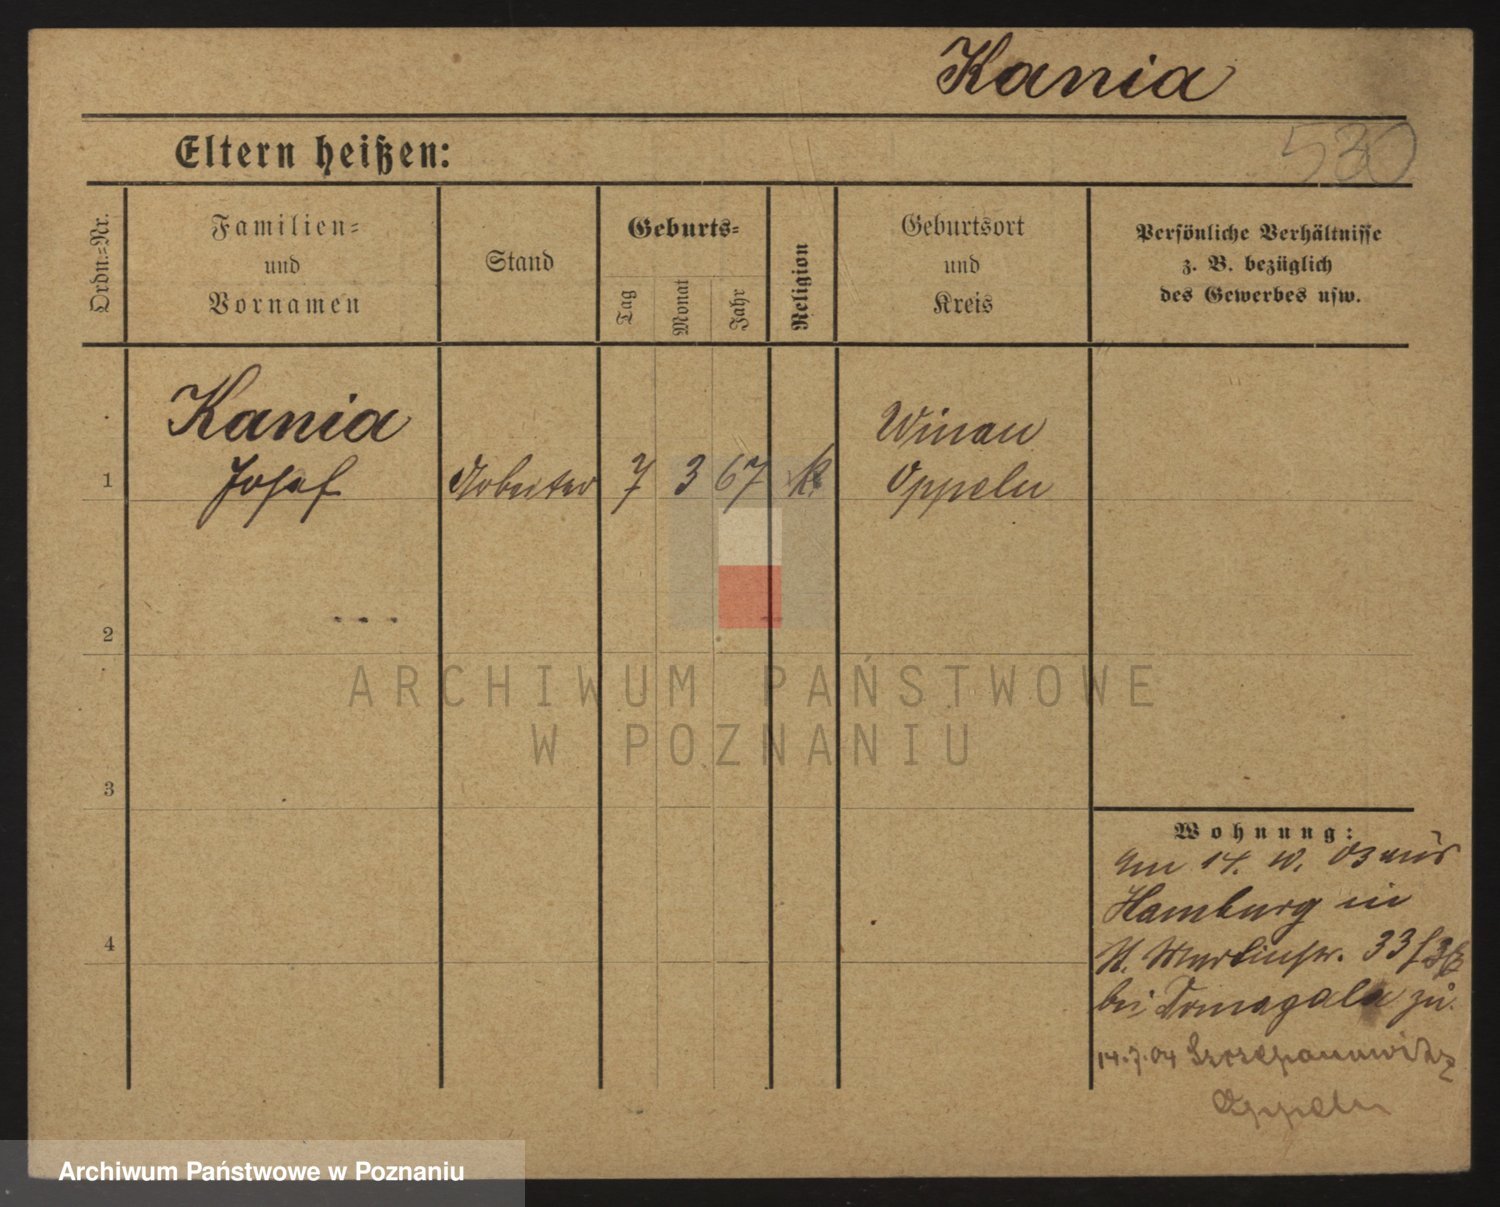 Kania
530
Eltern heißen:
Ordn.=Nr.
Familien=
und
Vornamen
Stand
Geburts=
Tag
Monat
Jahr
Religion
Geburtsort
und
Kreis
Persönliche Verhältnisse
z. B. bezüglich
des Gewerbes usw.
Kania
Josef
1
Arbeiter
7
3
67
k.
Winau
Oppeln
2
3
4
Wohnung:
Am 14. 10. 03 aus
Hamburg in
St. Martinstr. 33
bei Domagala zu.
14.7.04 Szczepanowitz
Oppeln
ARCHIWUM PAŃSTWOWE
W POZNANIU
Archiwum Państwowe w Poznaniu